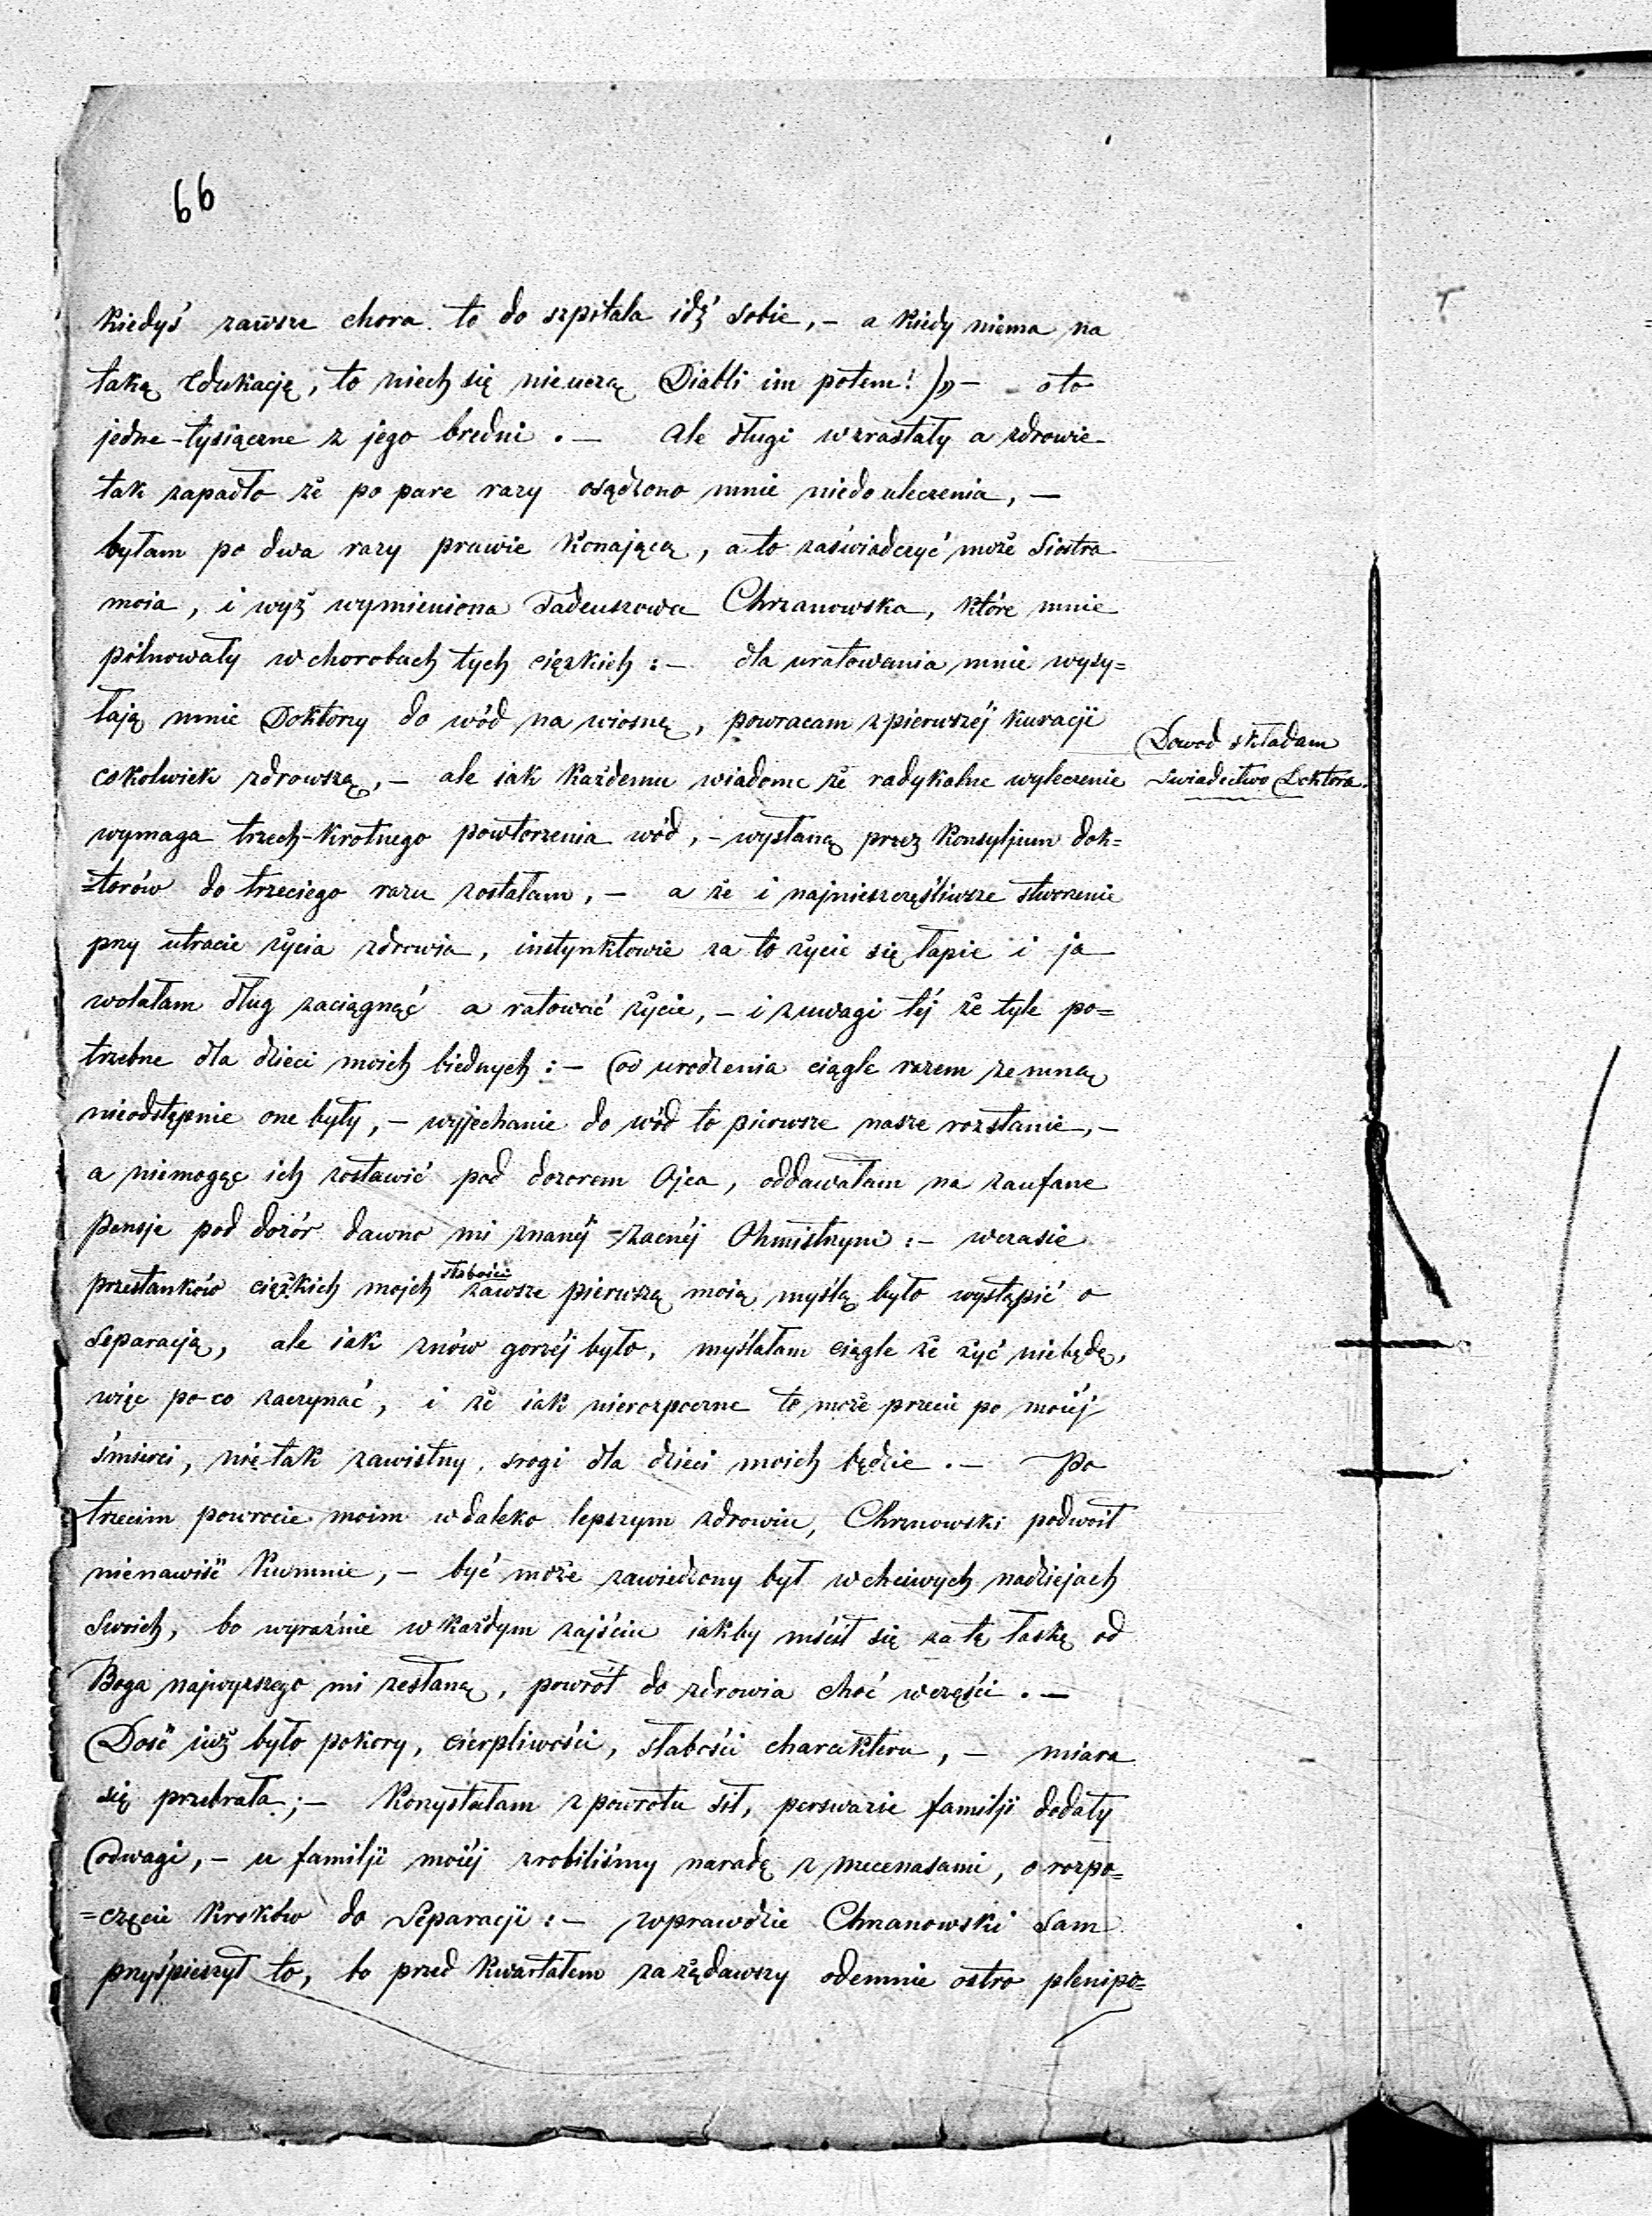 66
kiedyś zawsze chora to do szpitala idź sobie, – a kiedy niema na
taką edukację, to niech się nieuczą Diabli im potem!)» – oto
jedne-tysiączne z jego bredni . – Ale długi wzrastały a zdrowie
tak zapadło że po pare razy osądzono mnie niedouleczenia, –
byłam po dwa razy prawie konającą, a to zaświadczyć może Siostra
moia, i wyż wymieniona Tadeuszowa Chrzanowska, które mnie
pilnowały w chorobach tych ciężkich : – dla uratowania mnie wysy=
łają mnie Doktorzy do wód na wiosnę, powracam z pierwszéj kuracji
cokolwiek zdrowszą, – ale iak każdemu wiadome że radykalne wyleczenie
Dowod składam
swiadectwo Doktora.
wymaga trzech-krotnego powtorzenia wód, – wysłaną przez Konsyljum dok=
=torów do trzeciego razu zostałam, – a że i najnieszczęśliwsze stworzenie
przy utracie życia zdrowia, instynktowie za to życie się łapie i ja
wolałam dług zaciągnąć a ratować życie, – i z uwagi téj że tyle po=
trzebne dla dzieci moich biednych : – Od urodzenia ciągle razem zemną
nieodstępnie one były, – wyjechanie do wód to pierwsze nasze rozstanie, –
a niemogąc ich zostawić pod dozorem Ojca, oddawałam na zaufane
pensje pod dozór dawno mi znanéj – zacnéj Ohmistrzyni : – wczasie
przestanków ciężkich mojch słabości zawsze pierwszą moią myślą było wystąpić o
Separacją, ale iak znów gorzéj było, myślałam ciągle że żyć niebędę,
więc po-co zaczynać, i że iak nierozpoczne to może przecie po moiéj
śmierci, nie tak zawistny, srogi dla dzieci moich będzie . – Po
trzecim powrocie moim w daleko lepszym zdrowiu, Chrznowski podwoił
nienawiść kumnie, – być może zawiedzony był w chciwych nadziejach
Swoich, bo wyraźnie w każdym zajściu iakby mścił się za tę łaskę od
Boga najwyższego mi zesłaną, powrót do zdrowia choć wczęści . –
Dość iuż było pokory, cierpliwości, słabości charakteru, – miara
się przebrała; – Korzystałam z powrotu sił, perswazie familji dodały
Odwagi, – u familji moiéj zrobiliśmy naradę z mecenasami, o rozpo=
=częcie kroków do Separacji : – wprawdzie Chrzanowski Sam
przyśpieszył to, bo przed kwartałem zażądawszy odemnie ostro plenipo=